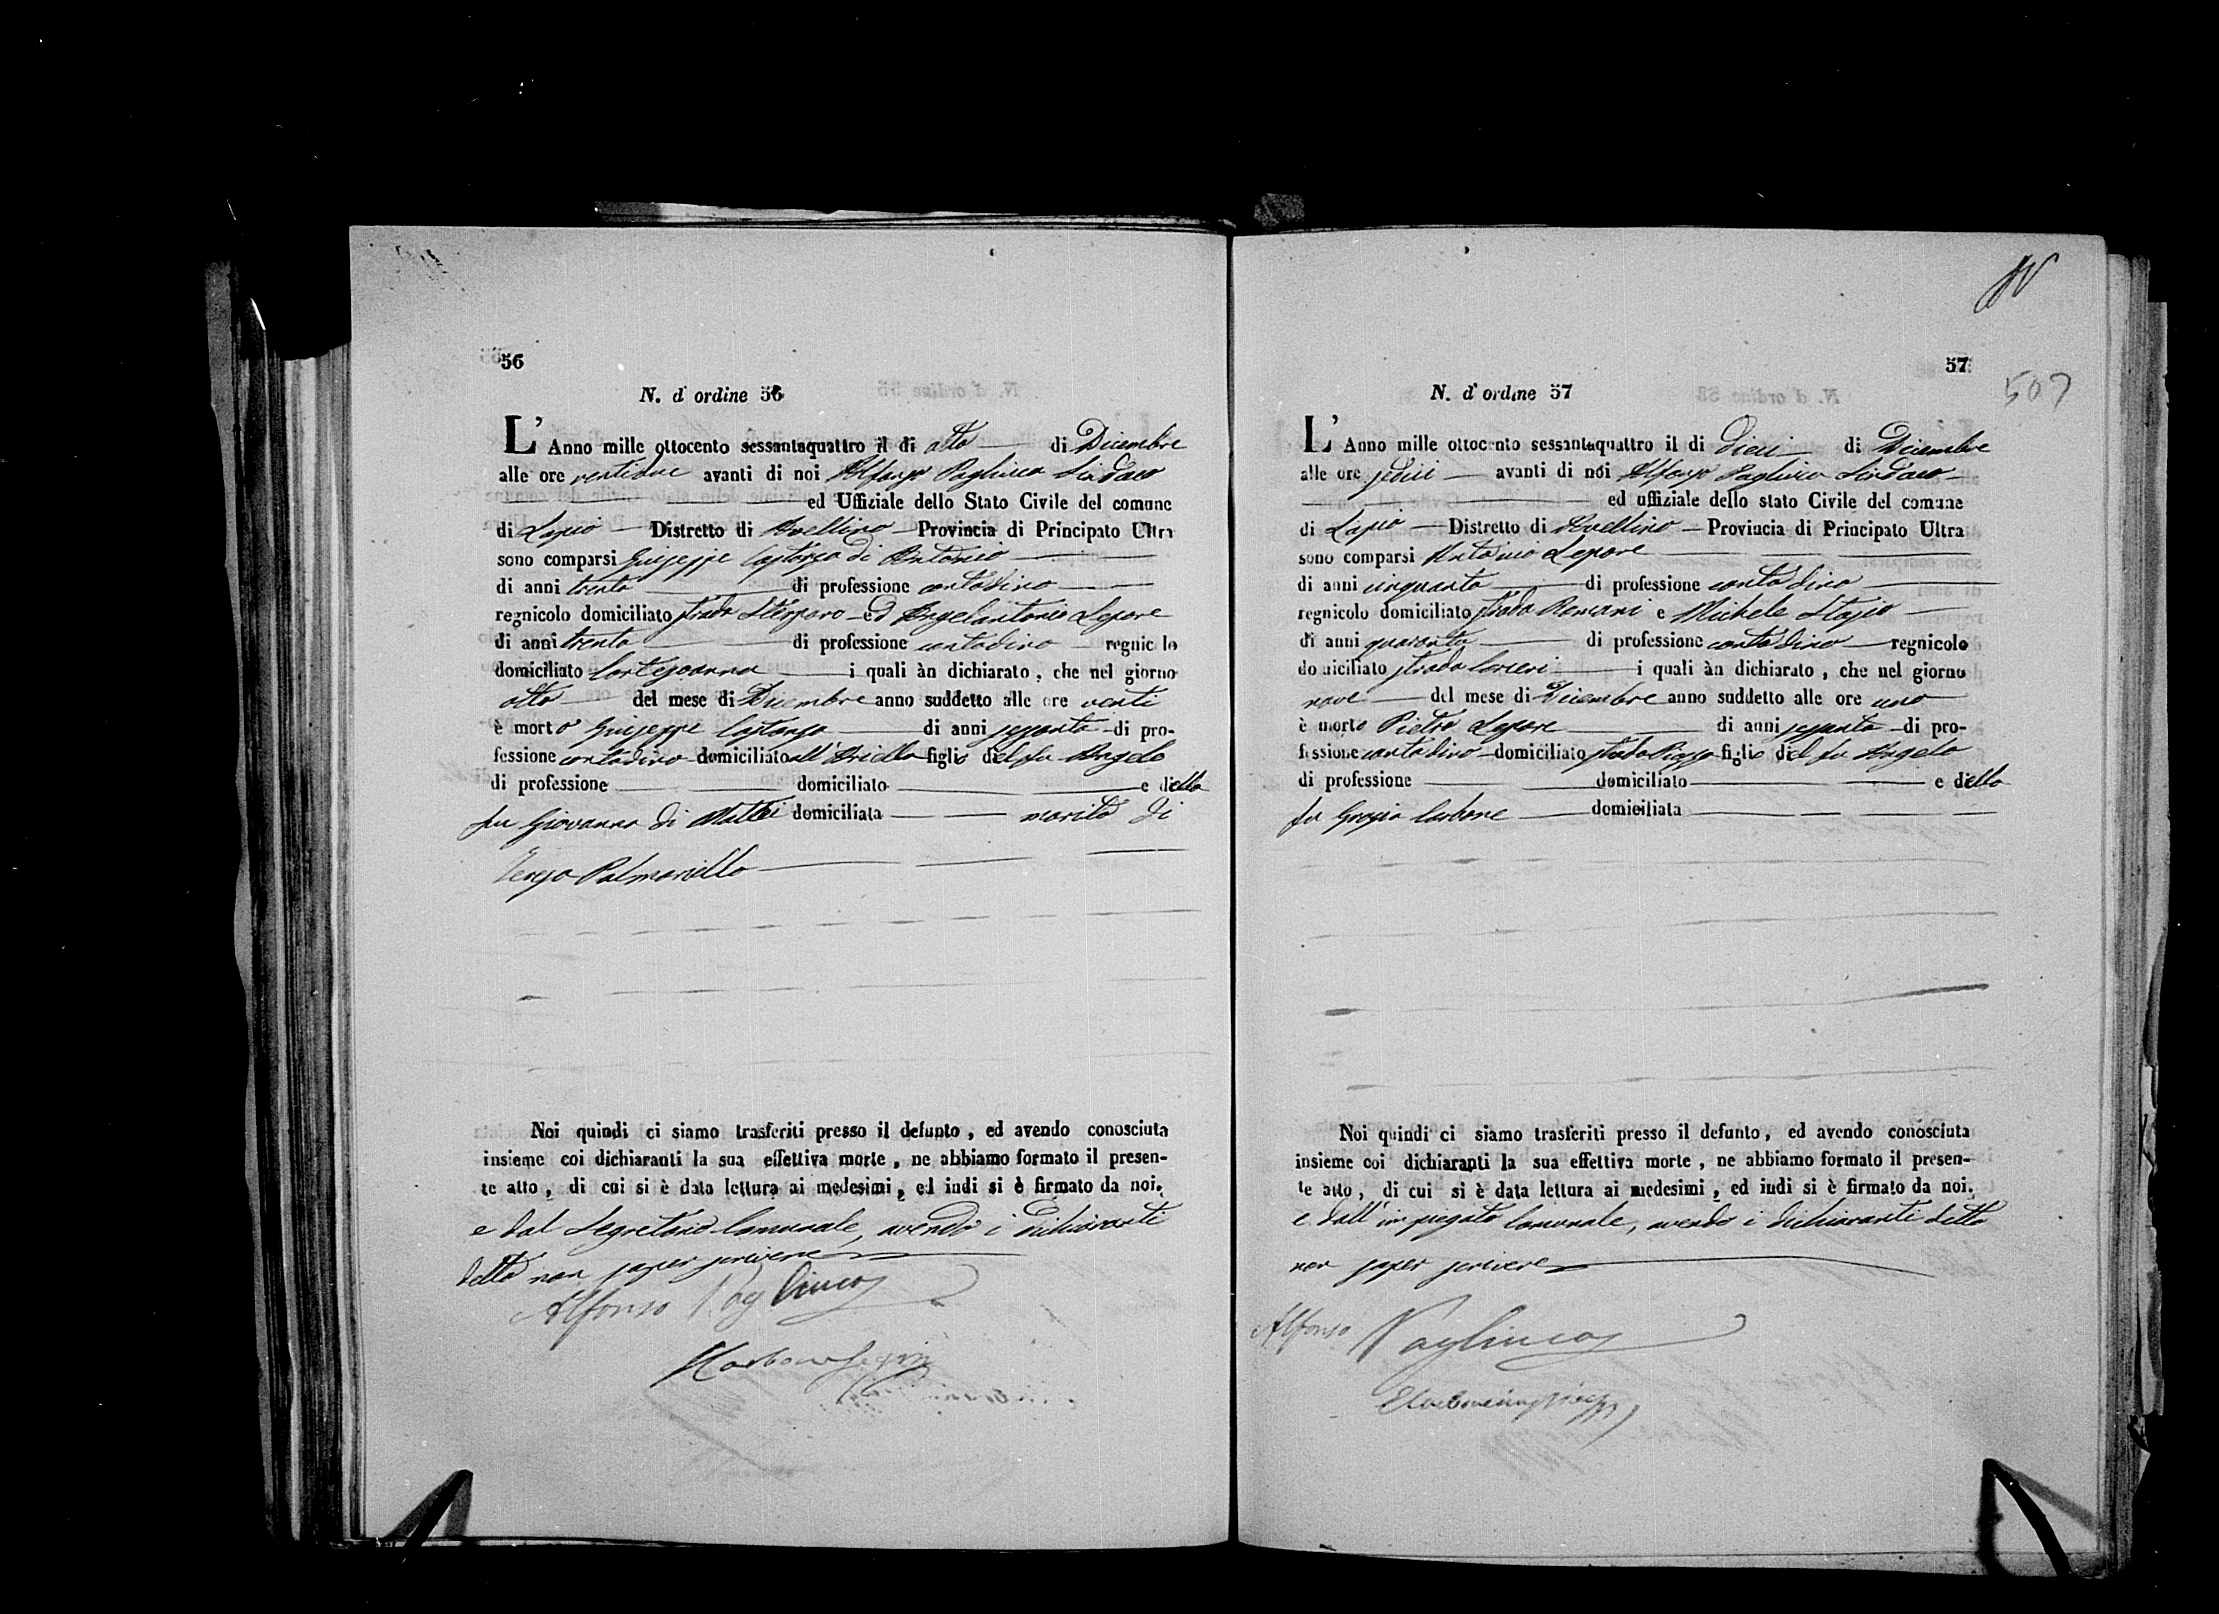 56
N. d'ordine 56
L'Anno mille ottocento sessantaquattro il di otto di Dicembre
alle ore ventidue avanti di noi Alfonso Pagliuca Sindaco
ed Uffiziale dello Stato Civile del comune
di Lapio Distretto di Avellino Provincia di Principato Ultra
sono comparsi Giuseppe Castanza di Antonio
di anni trenta di professione contadino
regnicolo domiciliato strada ed Angelantonio Lepore
di anni trenta di professione contadino regnicolo
domiciliato Cortejoanna i quali àn dichiarato, che nel giorno
otto del mese di Dicembre anno suddetto alle ore venti
è morto Giuseppe Castanza di anni sessanta di pro-
fessione contadino domiciliato all' figlio del fu Angelo
di professione domiciliato e della
fu Giovanna di Mattei domiciliata marito di
Teresa Palmariello
Noi quindi ci siamo trasferiti presso il defunto, ed avendo conosciuta
insieme coi dichiaranti la sua effettiva morte, ne abbiamo formato il presen-
te atto, di cui si è data lettura ai medesimi, ed indi si è firmato da noi.
e dal Segretario Comunale, avendo i dichiaranti
detto non saper scrivere
Alfonso Pagliuca
57
507
N. d'ordine 57
L'Anno mille ottocento sessantaquattro il di dieci di Dicembre
alle ore sedici avanti di noi Alfonso Pagliuca Sindaco
ed uffiziale dello stato Civile del comune
di Lapio Distretto di Avellino Provincia di Principato Ultra
sono comparsi Antonio Lepore
di anni cinquanta di professione contadino
regnicolo domiciliato strada Romani e Michele Stasio
di anni quaranta di professione contadino regnicolo
domiciliato strada i quali àn dichiarato, che nel giorno
nove del mese di Dicembre anno suddetto alle ore uno
è morto Pietro Lepore di anni sessanta di pro-
fessione contadino domiciliato strada Piazza figlio del fu Angelo
di professione domiciliato e della
fu Grazia Carbone domiciliata
Noi quindi ci siamo trasferiti presso il defunto, ed avendo conosciuta
insieme coi dichiaranti la sua effettiva morte, ne abbiamo formato il presen-
te atto, di cui si è data lettura ai medesimi, ed indi si è firmato da noi.
e dall'impiegato Comunale, avendo i dichiaranti detto
non saper scrivere
Alfonso Pagliuca